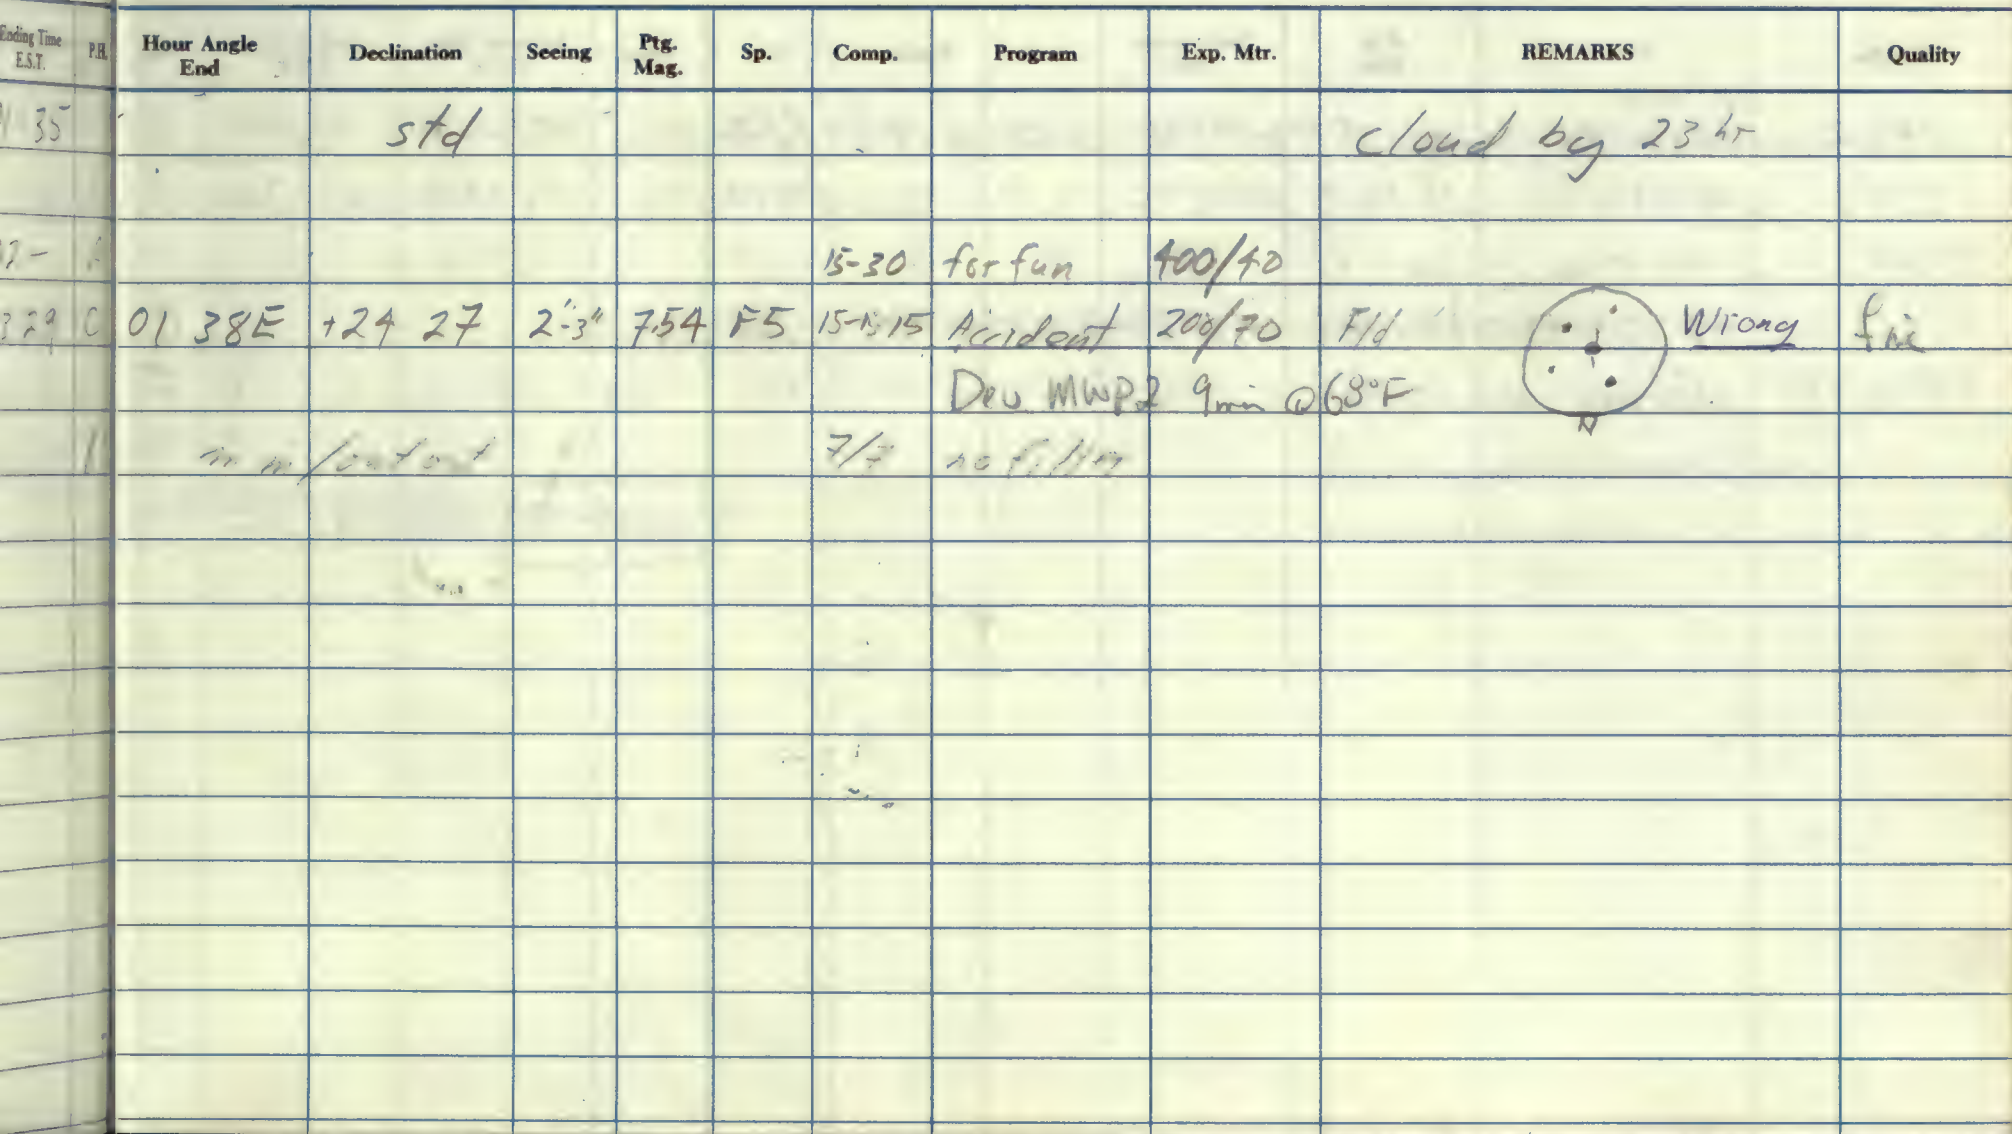 Ending Time E.S.T. P.H. Hour Angle End Declination Seeing Ptg. Mag. Sp. Comp. Program Exp. Mtr. REMARKS Quality
35 std cloud by 23 hr
15-30 for fun 400/40
C 01 38E +24 27 2"-3" 7.54 F5 15-15-15 Accident 200/70 Fld Wrong
Dev MWP2 9min @68°F
N
7/7 no filter